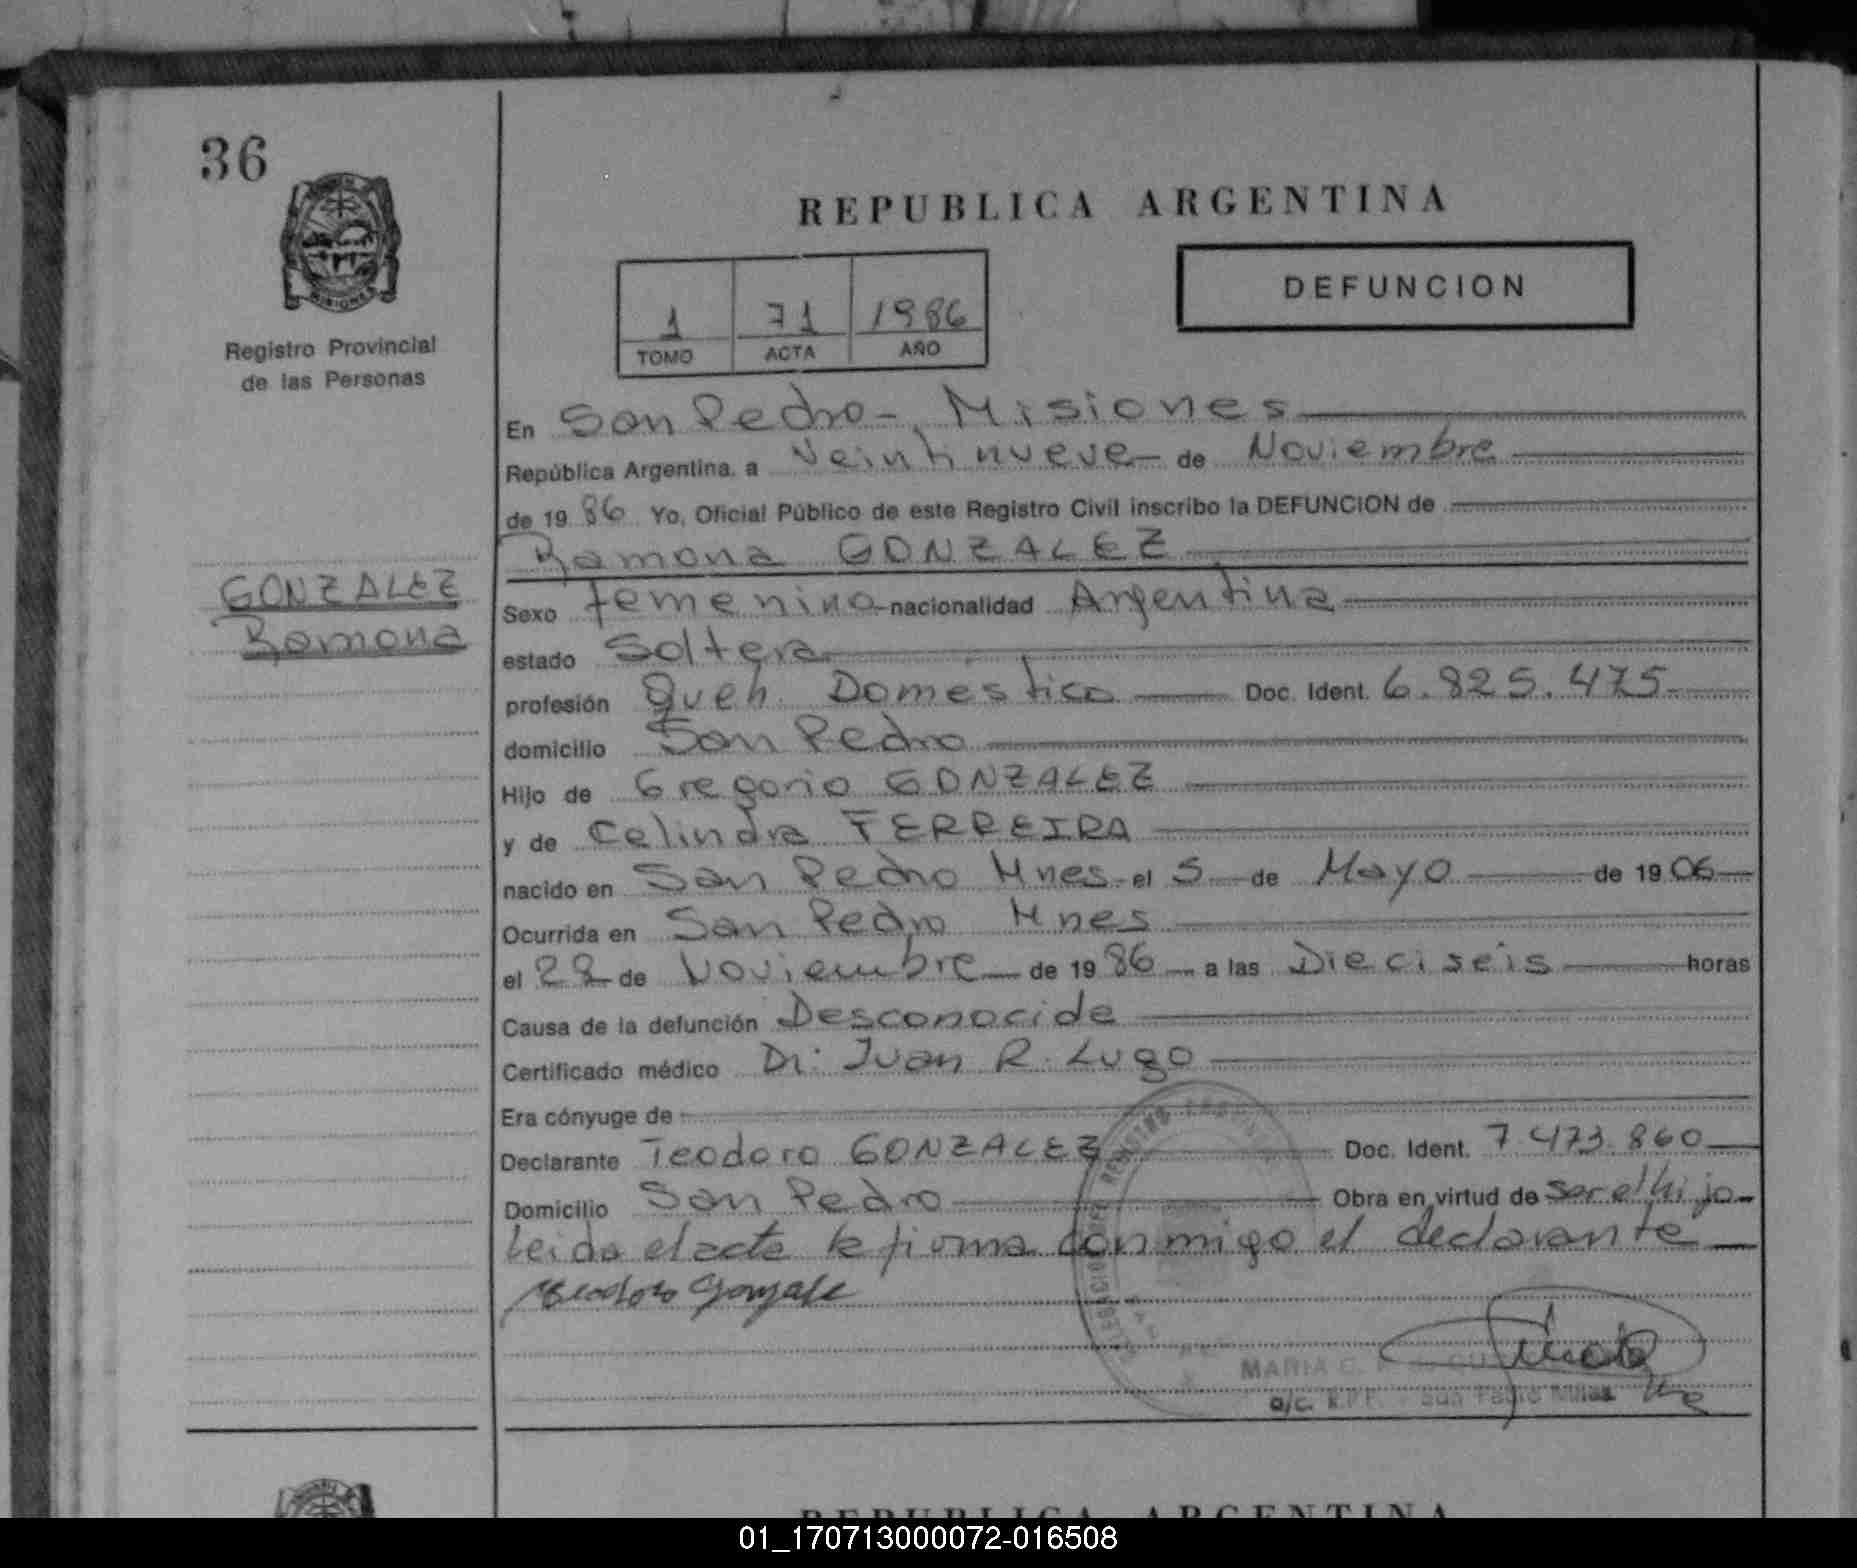 36
REPUBLICA ARGENTINA
DEFUNCION
MISIONES
Registro Provincial
de las Personas
1 71 1986
TOMO ACTA AÑO
En San Pedro - Misiones
República Argentina, a Veintinueve de Noviembre
de 1986 Yo, Oficial Público de este Registro Civil inscribo la DEFUNCION de
Ramona GONZALEZ
GONZALEZ
Ramona
Sexo femenino nacionalidad Argentina
estado Soltera
profesión Queh. Domestico Doc. Ident. 6.825.475
domicilio San Pedro
Hijo de Gregorio GONZALEZ
y de Celindra FERREIRA
nacido en San Pedro Mnes el 5 de Mayo de 1906
Ocurrida en San Pedro Mnes
el de Noviembre de 1986 a las Dieciseis horas
Causa de la defunción Desconocida
Certificado médico Dr. Juan R. Lugo
Era cónyuge de
Declarante Teodoro GONZALEZ Doc. Ident. 7.473.860
Domicilio San Pedro Obra en virtud de ser el hijo
Leida el acta la firma conmigo el declarante
Teodoro Gonzale
MARIA
a/c. San
REPUBLICA ARGENTINA
01_170713000072-016508